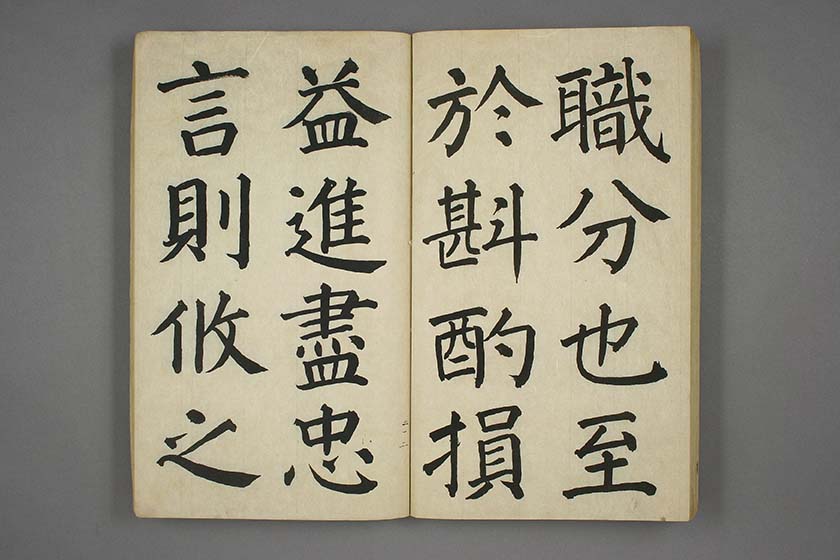 職分也至
於斟酌損
益進盡忠
言則攸之